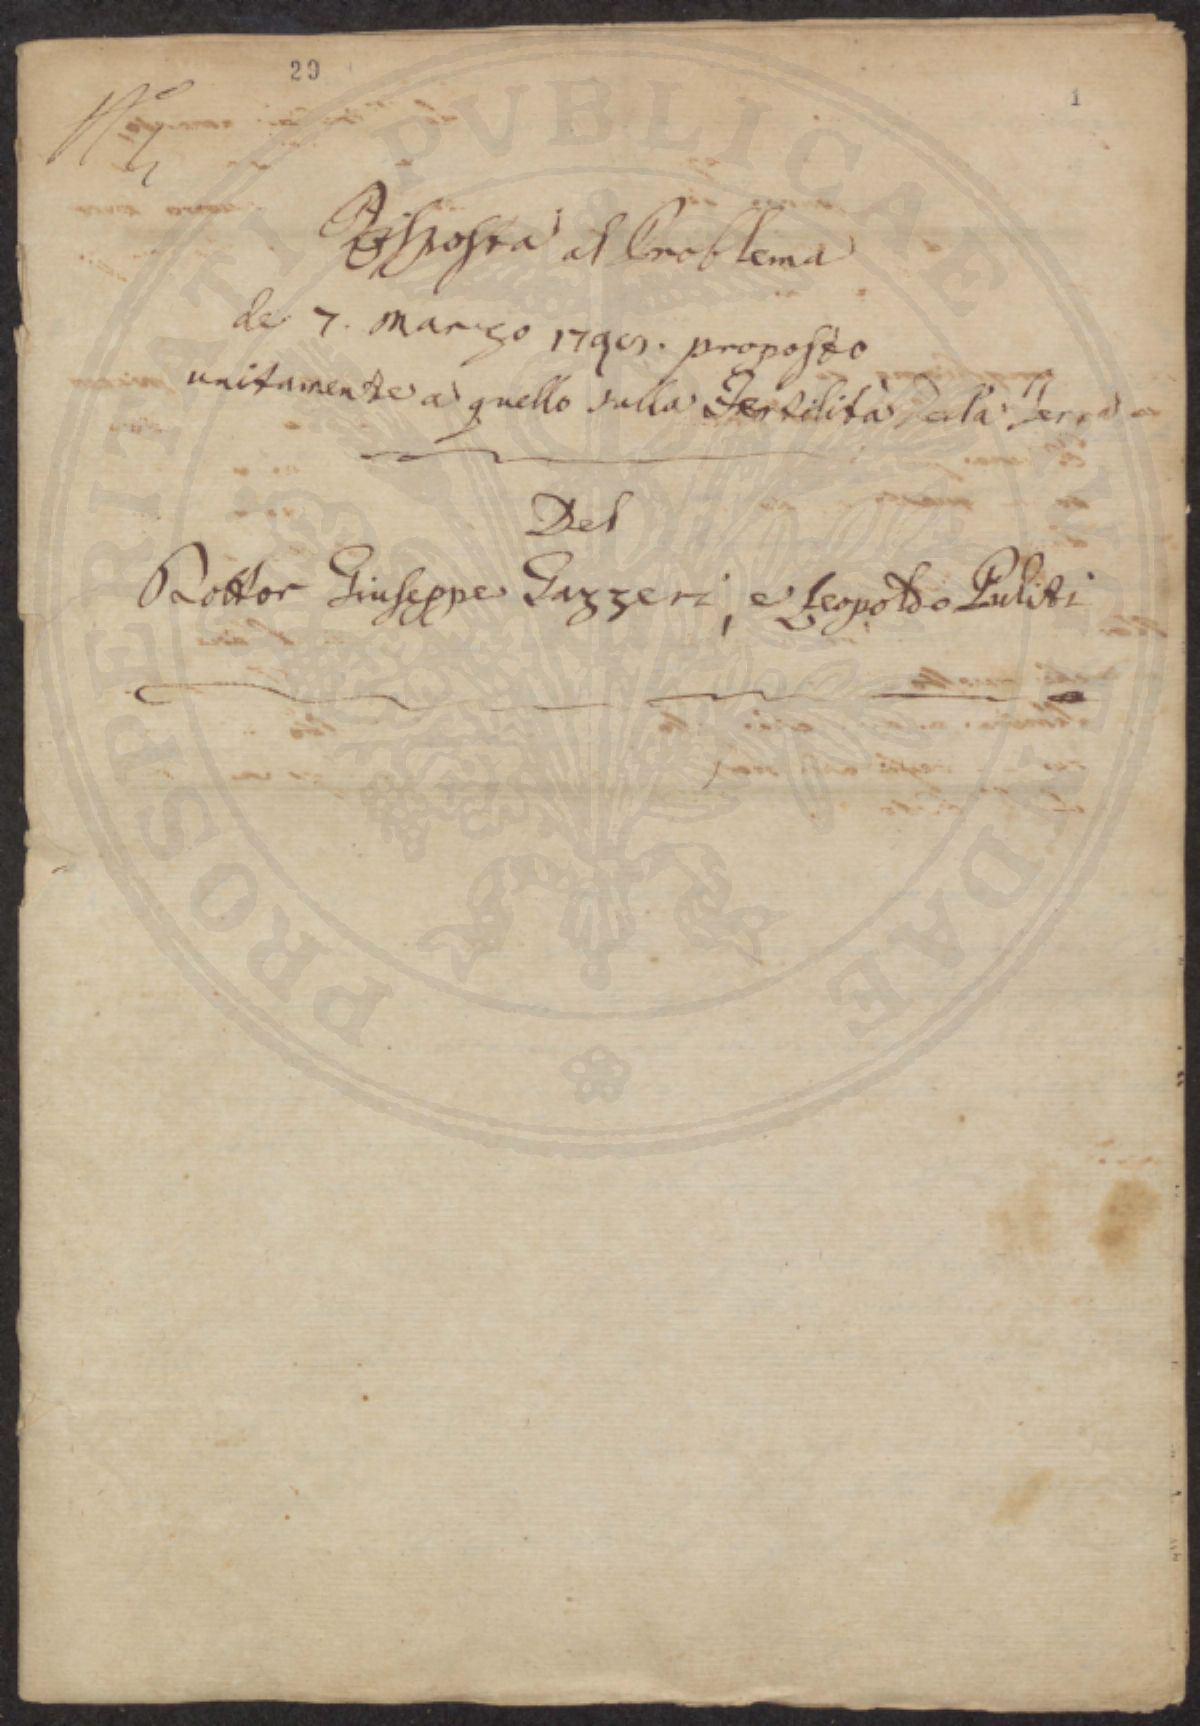 29
1
Risposta al Problema
de 7. Marzo proposto
unitamente a quello sulla Fertilità della Terra
Del
Dottor Giuseppe Gazzeri, e Leopoldo Puliti
PROSPERITATI PVBLICAE AVGENDAE